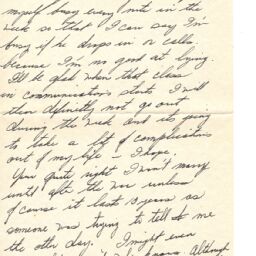 myself busy every nite in the
week so that I can say I'm
busy if he drops in or calls,
because I'm no good at lying.
I'll be glad when that class
in communications starts I will
then definitely not go out
during the week and its going
to take a lot of complications
out of my life - I hope.
You quite right I won't marry
until after the war unless
of course it lasts 10 years as
someone was trying to tell to me
the other day. I might even
Although